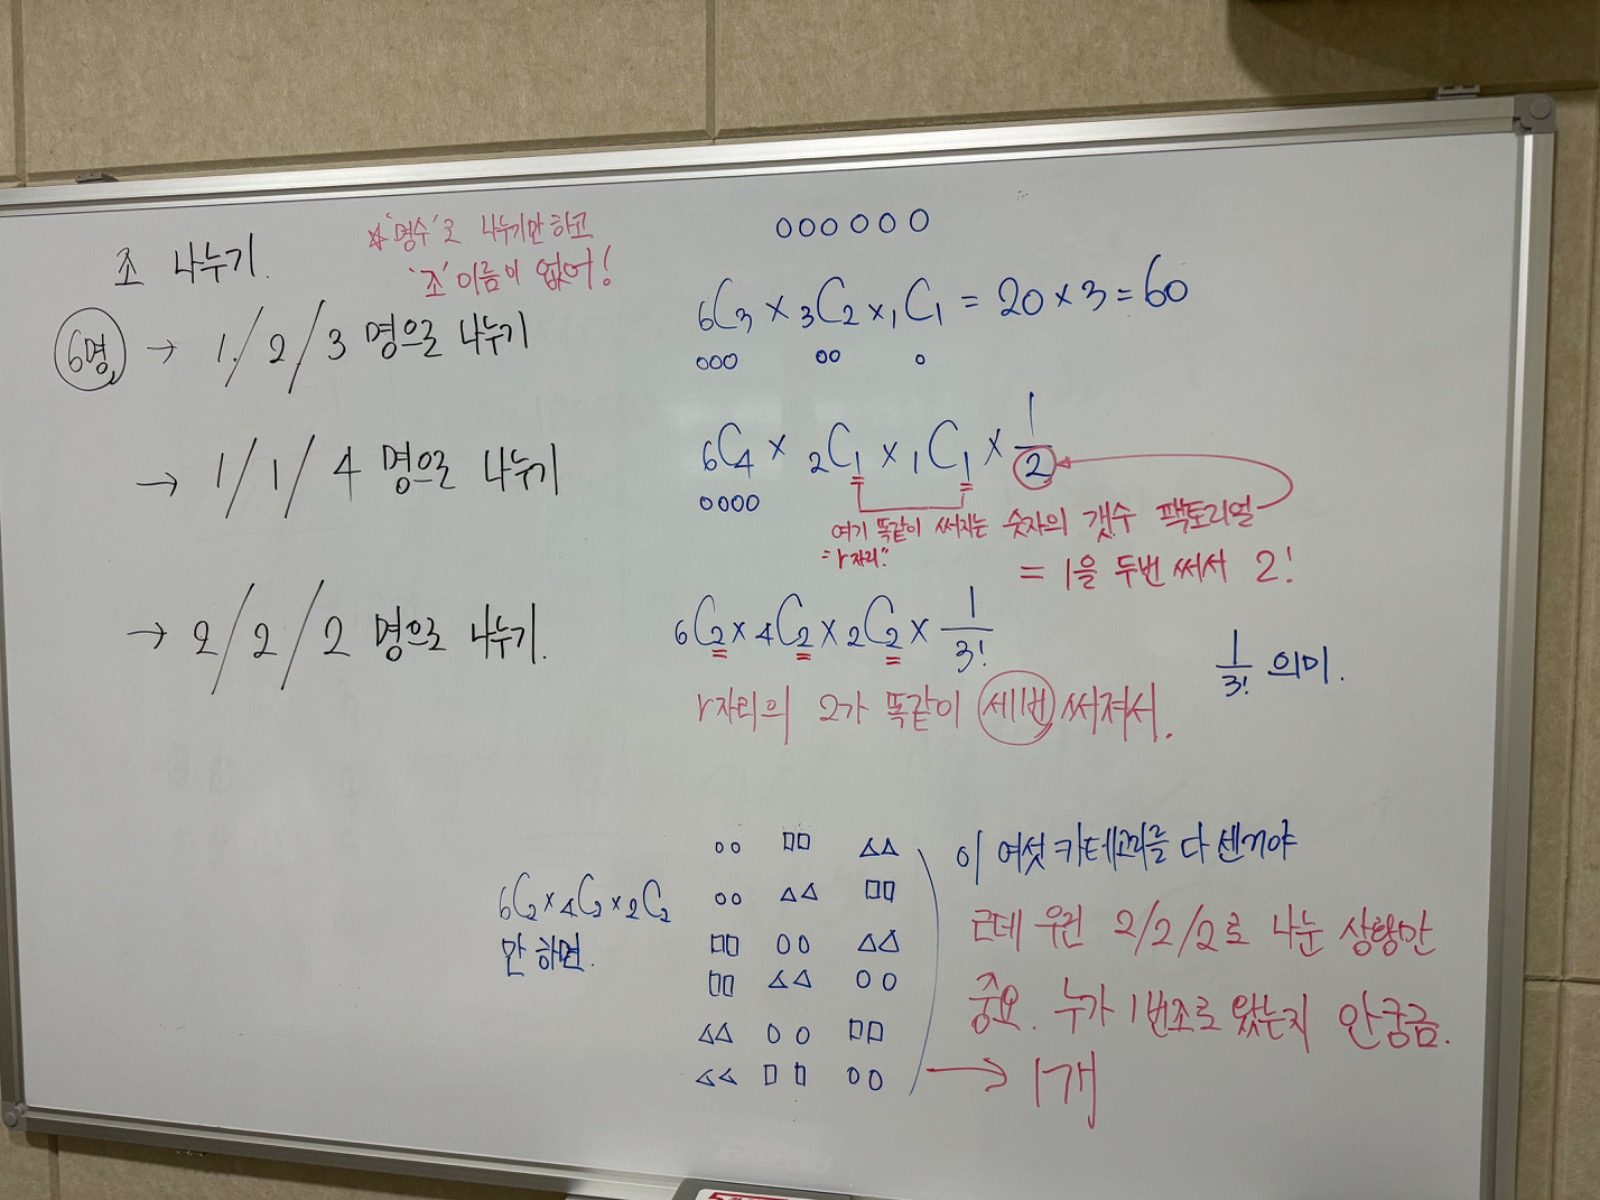 조 나누기.
☆'명수'로 나누기만 하고
'조' 이름이 없어!
6명 → 1 / 2 / 3 명으로 나누기
₆C₃ × ₃C₂ × ₁C₁ = 20 × 3 = 60
→ 1 / 1 / 4 명으로 나누기
₆C₄ × ₂C₁ × ₁C₁ × 1/2
여기 똑같이 써지는 숫자의 갯수 팩토리얼
= "r자리"
= 1을 두번 써서 2!
→ 2 / 2 / 2 명으로 나누기.
₆C₂ × ₄C₂ × ₂C₂ × 1/3!
r자리의 2가 똑같이 세번 써져서.
1/3! 의미.
₆C₂ × ₄C₂ × ₂C₂
만 하면.
이 여섯 카테고리를 다 센거야
근데 우린 2/2/2로 나눈 상황만
중요. 누가 1번조로 왔는지 안궁금.
→ 1개